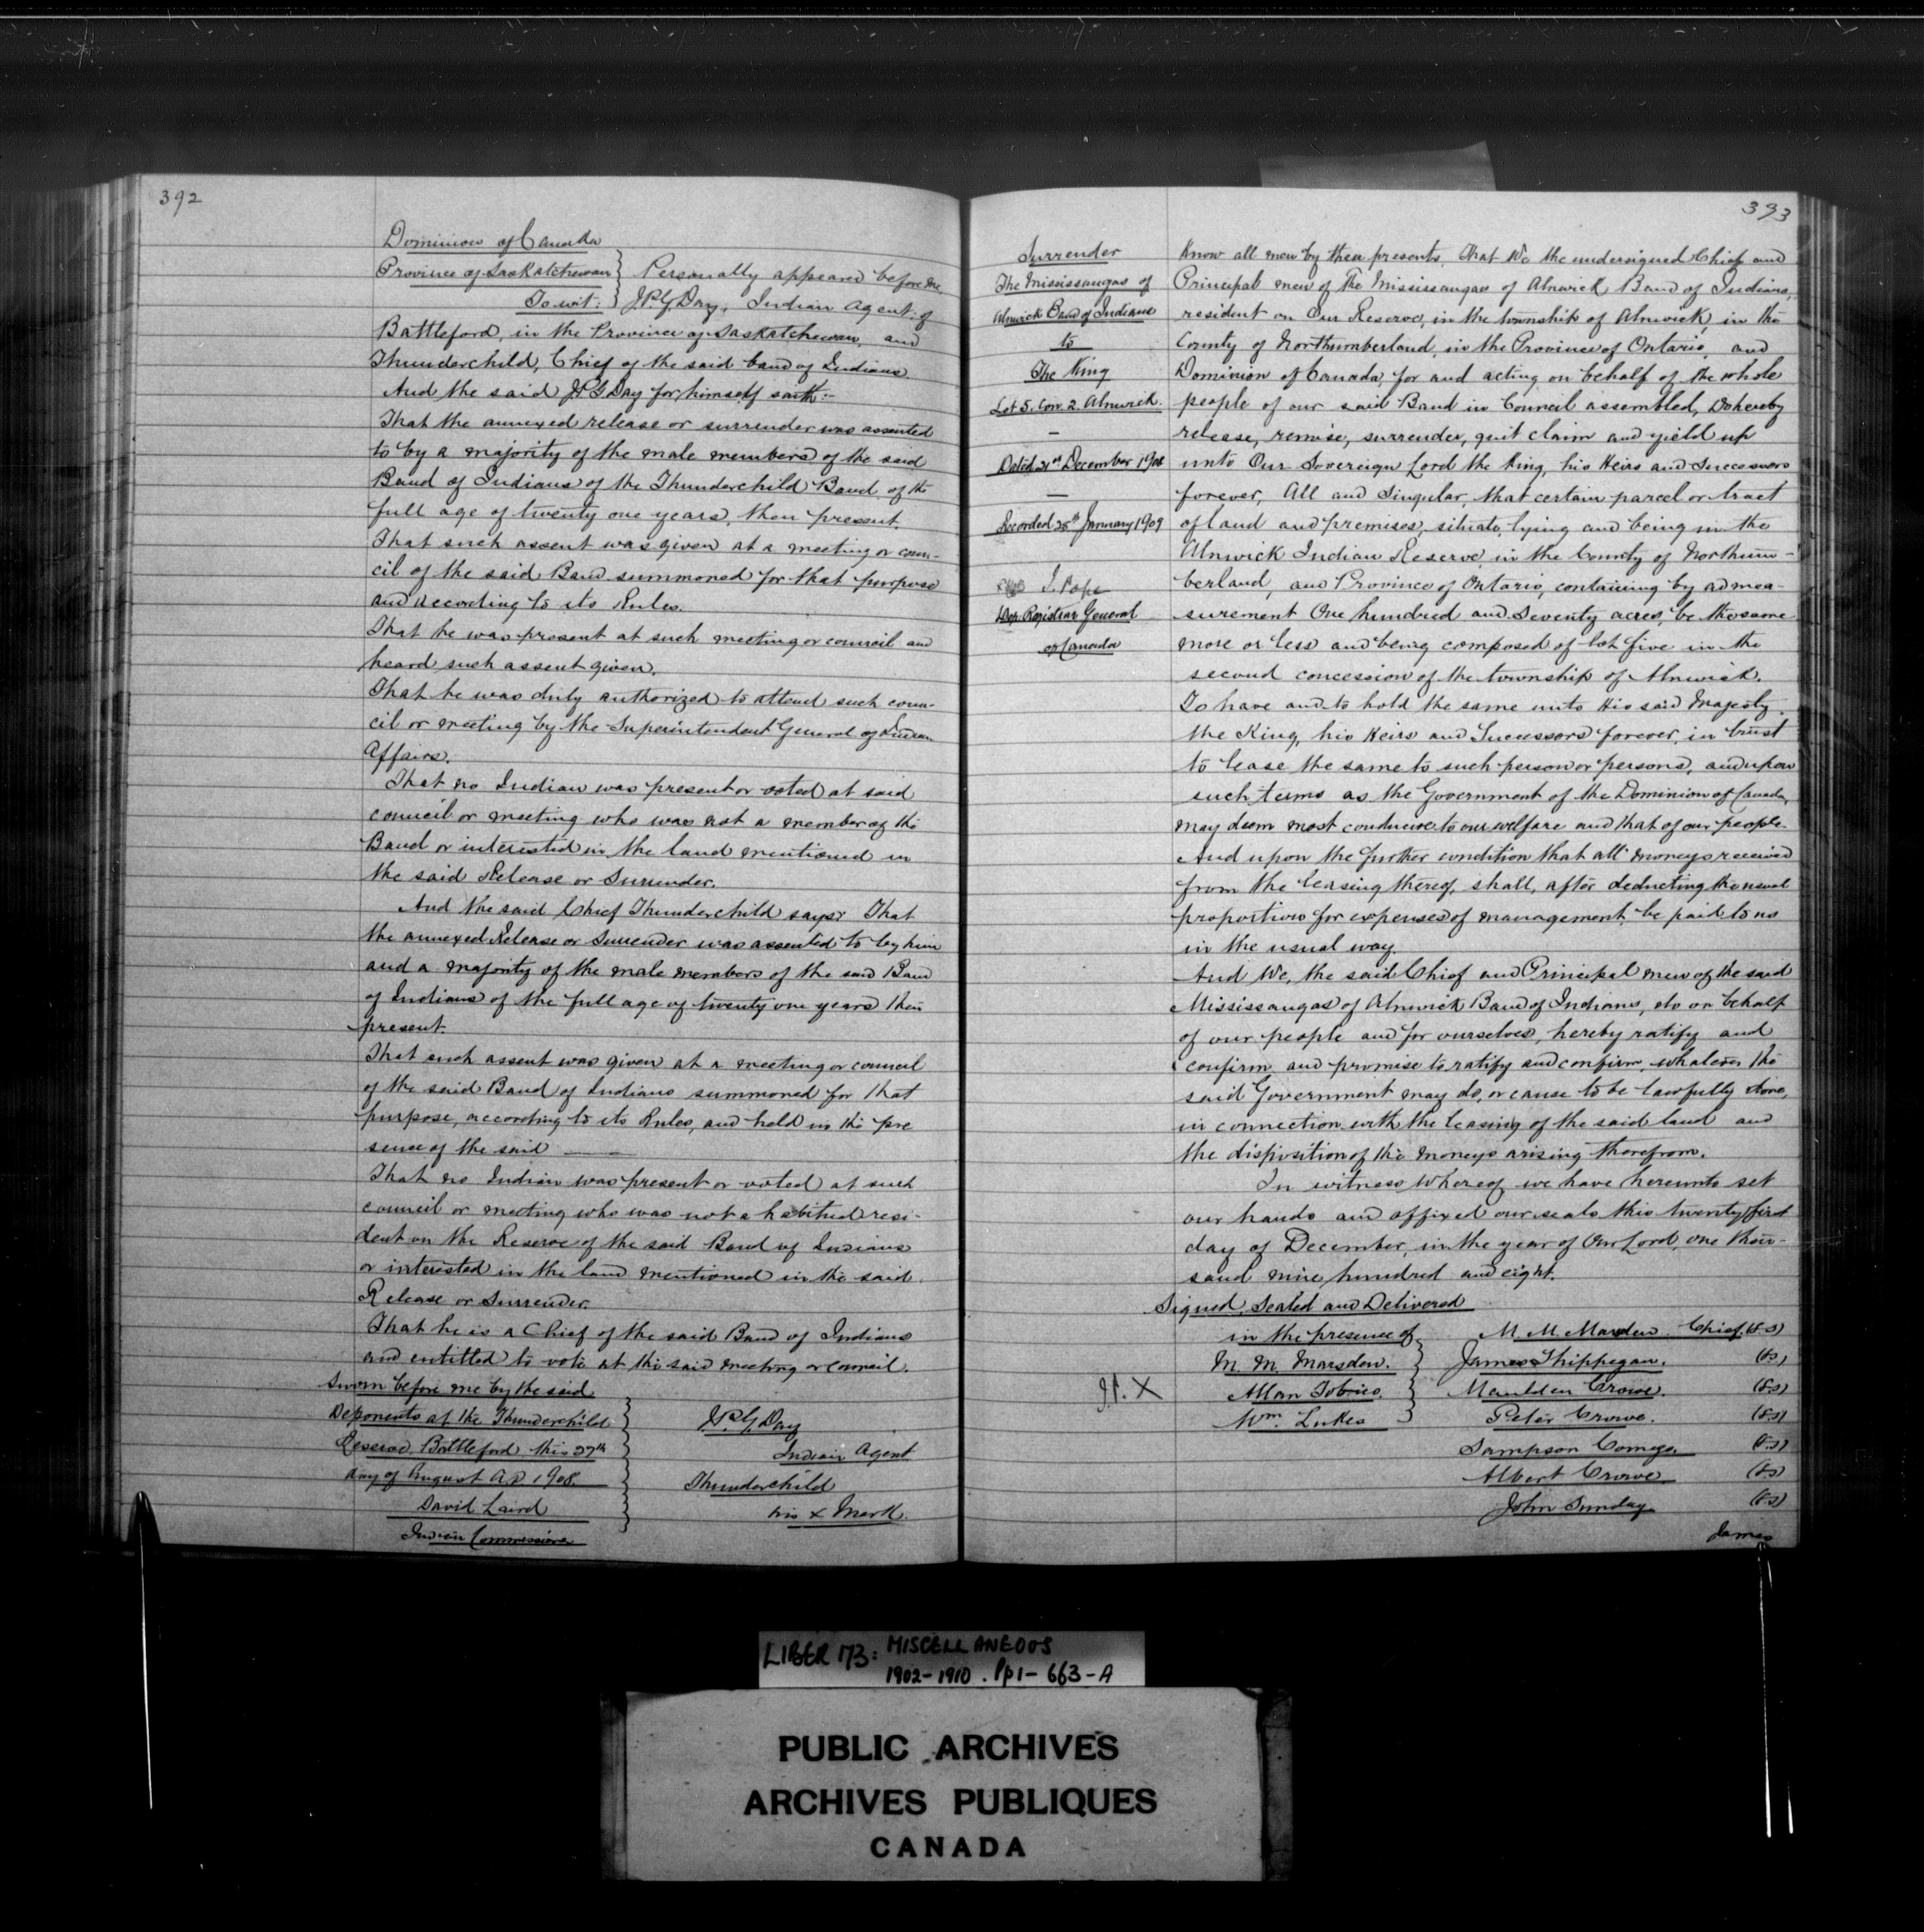 392
Dominion of Canada
Province of Saskatchewan } Personally appeared before me,
To wit: } J.P.G. Day, Indian Agent of
Battleford, in the Province of Saskatchewan, and
Thunderchild, Chief of the said band of Indians
And the said J.P.G. Day for himself saith:-
That the annexed release or surrender was assented
to by a majority of the male members of the said
Band of Indians of the Thunderchild Band of the
full age of twenty one years, then present.
That such assent was given at a meeting or coun-
cil of the said Band summoned for that purpose
and according to its Rules.
That he was present at such meeting or council and
heard such assent given.
That he was duly authorized to attend such coun-
cil or meeting by the Superintendent General of Indian
Affairs.
That no Indian was present or voted at said
council or meeting who was not a member of the
Band or interested in the land mentioned in
the said Release or Surrender.
And the said Chief Thunderchild says: That
the annexed Release or Surrender was assented to by him
and a majority of the male members of the said Band
of Indians of the full age of twenty one years then
present.
That such assent was given at a meeting or council
of the said Band of Indians summoned for that
purpose, according to its Rules, and held in the pre
sence of the said ——
That no Indian was present or voted at such
council or meeting who was not a habitual resi-
dent on the Reserve of the said Band of Indians
or interested in the land mentioned in the said
Release or Surrender.
That he is a Chief of the said Band of Indians
and entitled to vote at the said meeting or council.
Sworn before me by the said
Deponents at the Thunderchild } J.P.G. Day
Reserve Battleford this 27th Indian Agent
day of August A.D. 1908. Thunderchild
David Laird his x Mark.
Indian Commissioner
393
Surrender
The Mississaugas of
Alnwick Band of Indians
to
The King
Lot 5. Con. 2. Alnwick.
—
Dated 21st December 1908
—
Recorded 28th January 1909
J. Pope
Dep. Registrar General
of Canada
Know all men by these presents, That We the undersigned Chief and
Principal men of the Mississaugas of Alnwick Band of Indians,
resident on Our Reserve, in the township of Alnwick, in the
County of Northumberland, in the Province of Ontario, and
Dominion of Canada, for and acting on behalf of the whole
people of our said Band in Council assembled, Do hereby
release, remise, surrender, quit claim and yield up
unto Our Sovereign Lord the King, his Heirs and Successors
forever, All and Singular, that certain parcel or tract
of land and premises, situate, lying and being in the
Alnwick Indian Reserve, in the County of Northum-
berland, and Province of Ontario, containing by admea-
surement One hundred and Seventy acres, be the same
more or less and being composed of lot five in the
second concession of the township of Alnwick.
To have and to hold the same unto His said Majesty
the King, his Heirs and Successors forever, in trust
to lease the same to such person or persons, and upon
such terms as the Government of the Dominion of Canada,
may deem most conducive to our welfare and that of our people.
And upon the further condition that all moneys received
from the leasing thereof, shall, after deducting the usual
proportions for expenses of management, be paid to us
in the usual way.
And We, the said Chief and Principal men of the said
Mississaugas of Alnwick Band of Indians, do on behalf
of our people and for ourselves, hereby ratify and
confirm and promise to ratify and confirm, whatever the
said Government may do, or cause to be lawfully done,
in connection with the leasing of the said land and
the disposition of the moneys arising therefrom.
In witness Whereof we have hereunto set
our hands and affixed our seals this twenty first
day of December, in the year of Our Lord, one thou-
sand nine hundred and eight.
Signed, Sealed and Delivered
in the presence of M. M. Marsden Chief (LS)
M. M. Marsden. } James Shippegaw. (LS)
J.P. X Allan Tobico. } Maulden Crowe. (LS)
Wm. Lukes Peter Crowe. (LS)
Sampson Comego. (LS)
Albert Crowe (LS)
John Sunday (LS)
James
LIBER 173: MISCELLANEOUS
1902-1910. Pp 1-663-A
PUBLIC ARCHIVES
ARCHIVES PUBLIQUES
CANADA